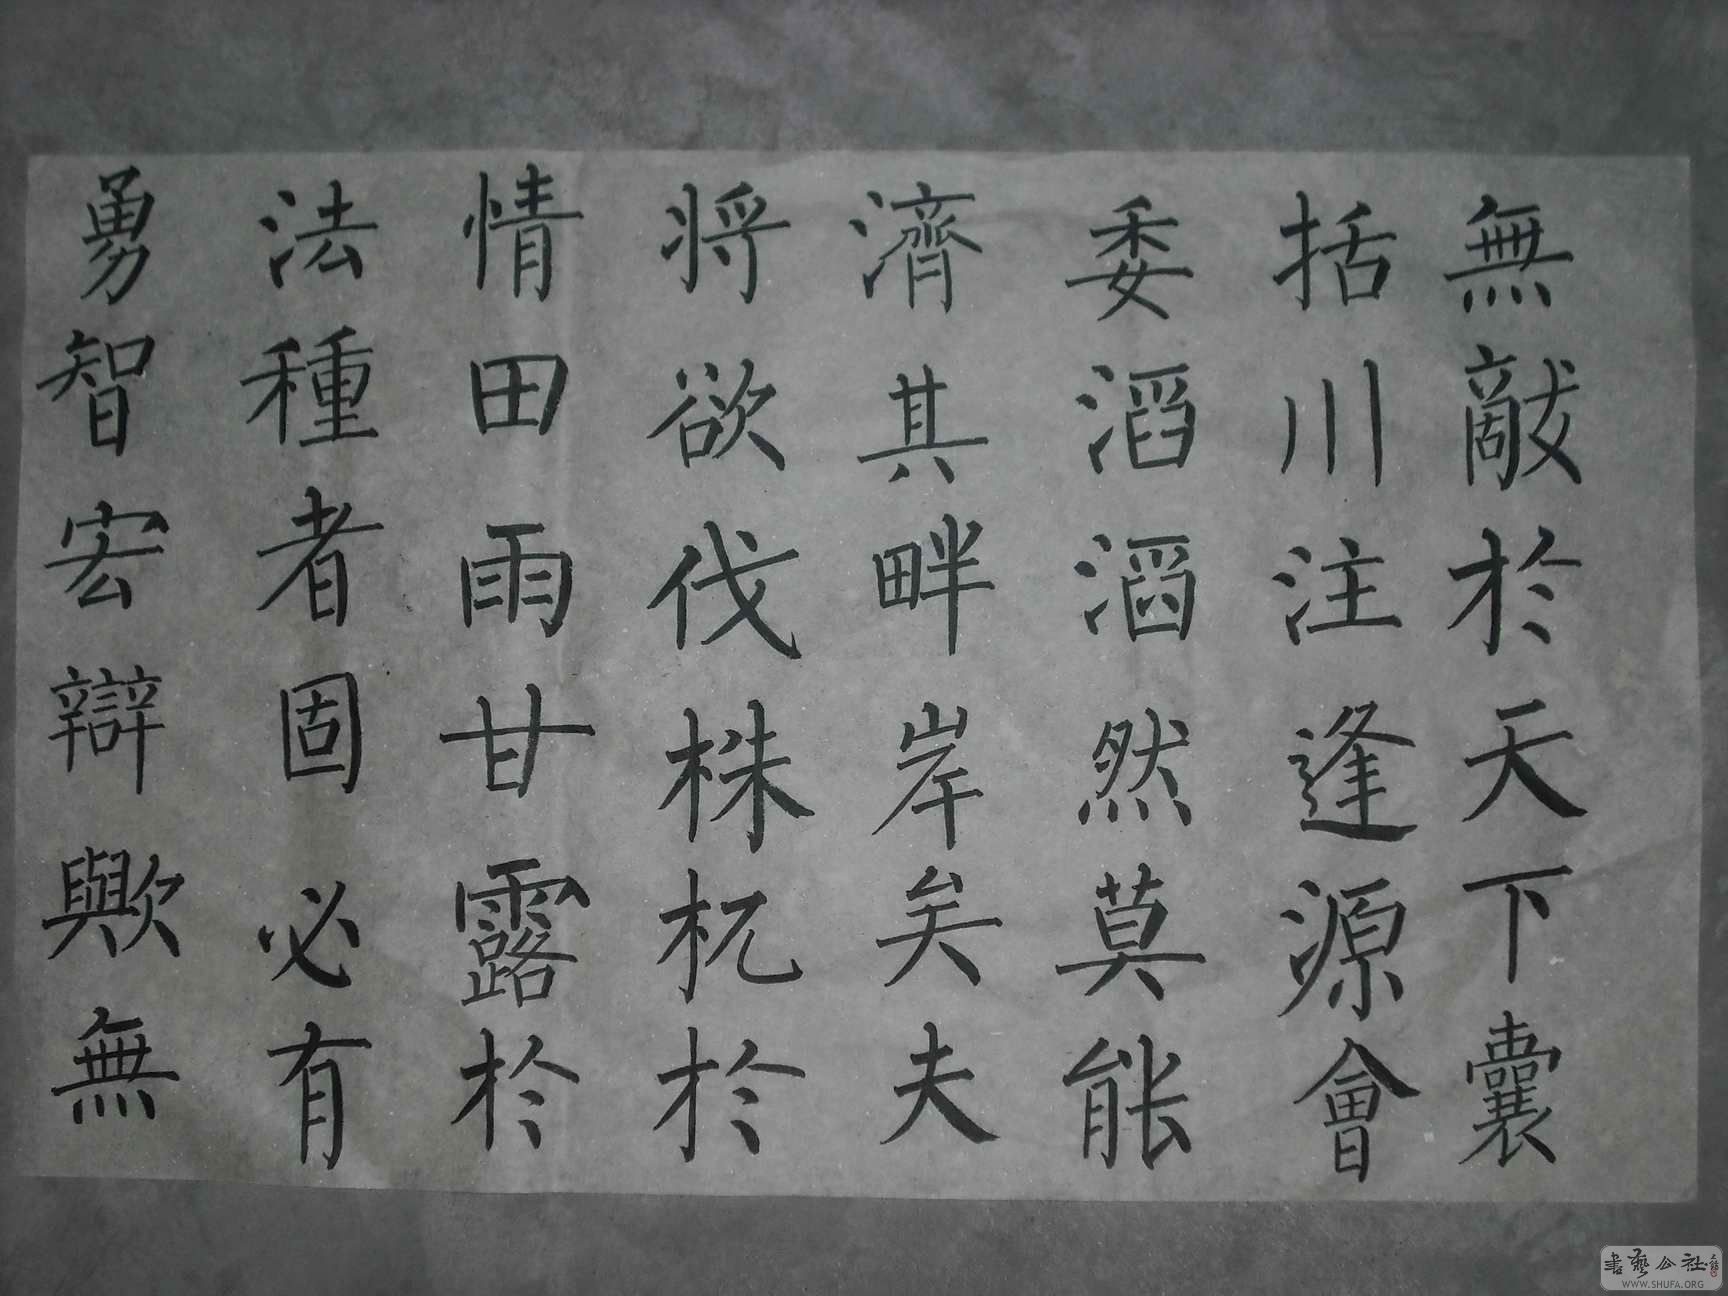 無敵於天下囊
括川注逢源會
委滔滔然莫能
濟其畔岸矣夫
将欲伐株杌於
情田雨甘露於
法種者固必有
勇智宏辯歟無
書藝公社
WWW.SHUFA.ORG